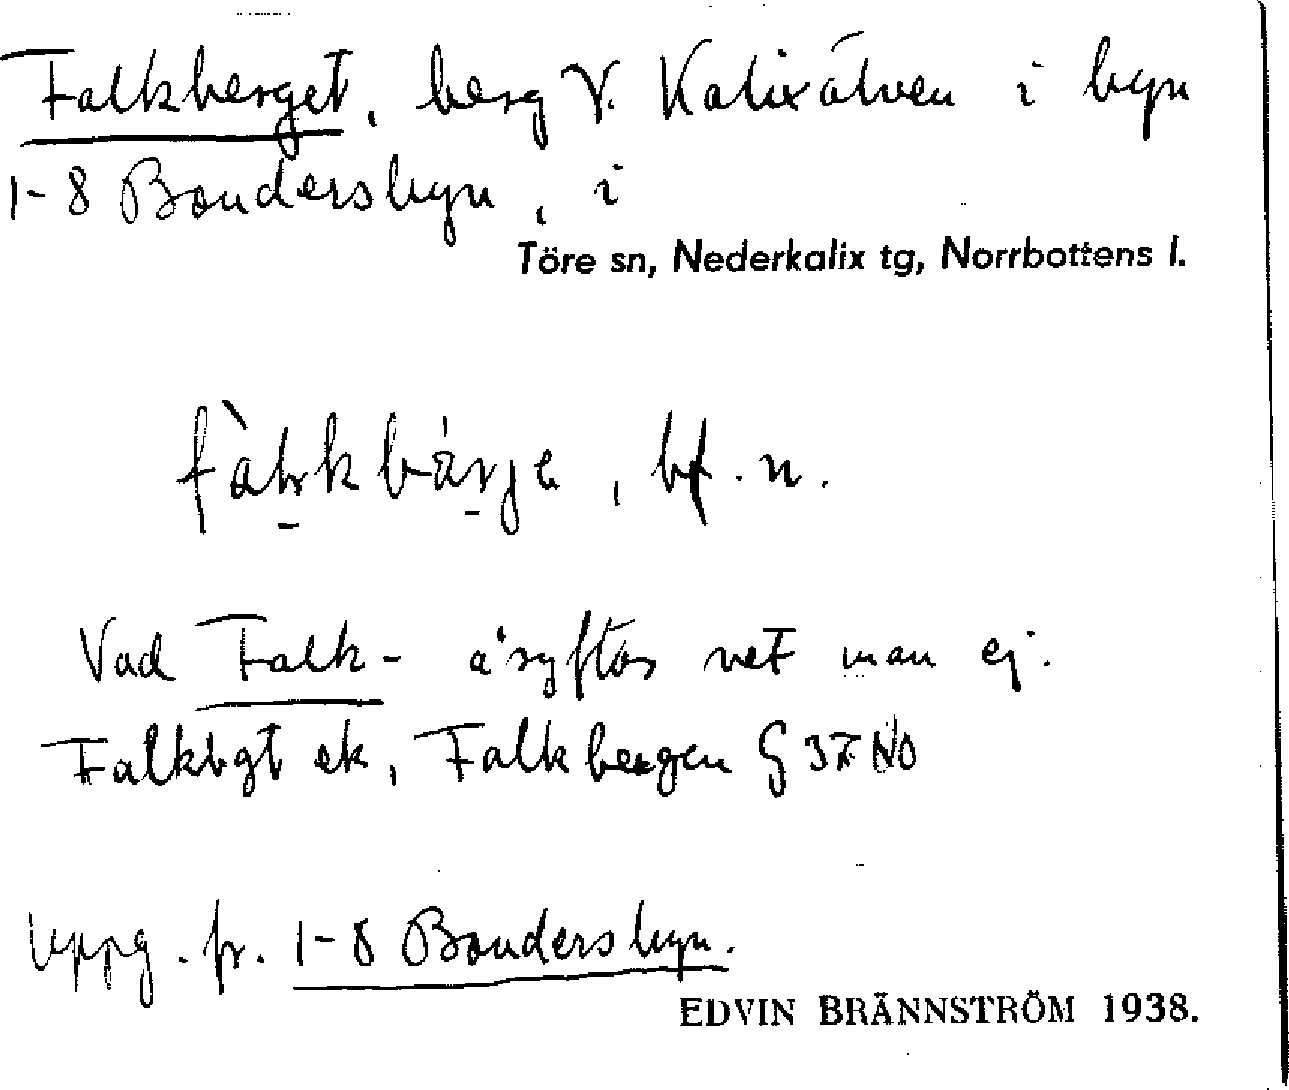 Falkberget, berg V. Kalixälven i byn
1-8 Bondersbyn, i
Töre sn, Nederkalix tg, Norrbottens l.
bf. n.
Vad Falk- åsyftar vet man ej.
Falkbgt ek, Falkbergen § 37 NO
Uppg. fr. 1-8 Bondersbyn.
EDVIN BRÄNNSTRÖM 1938.